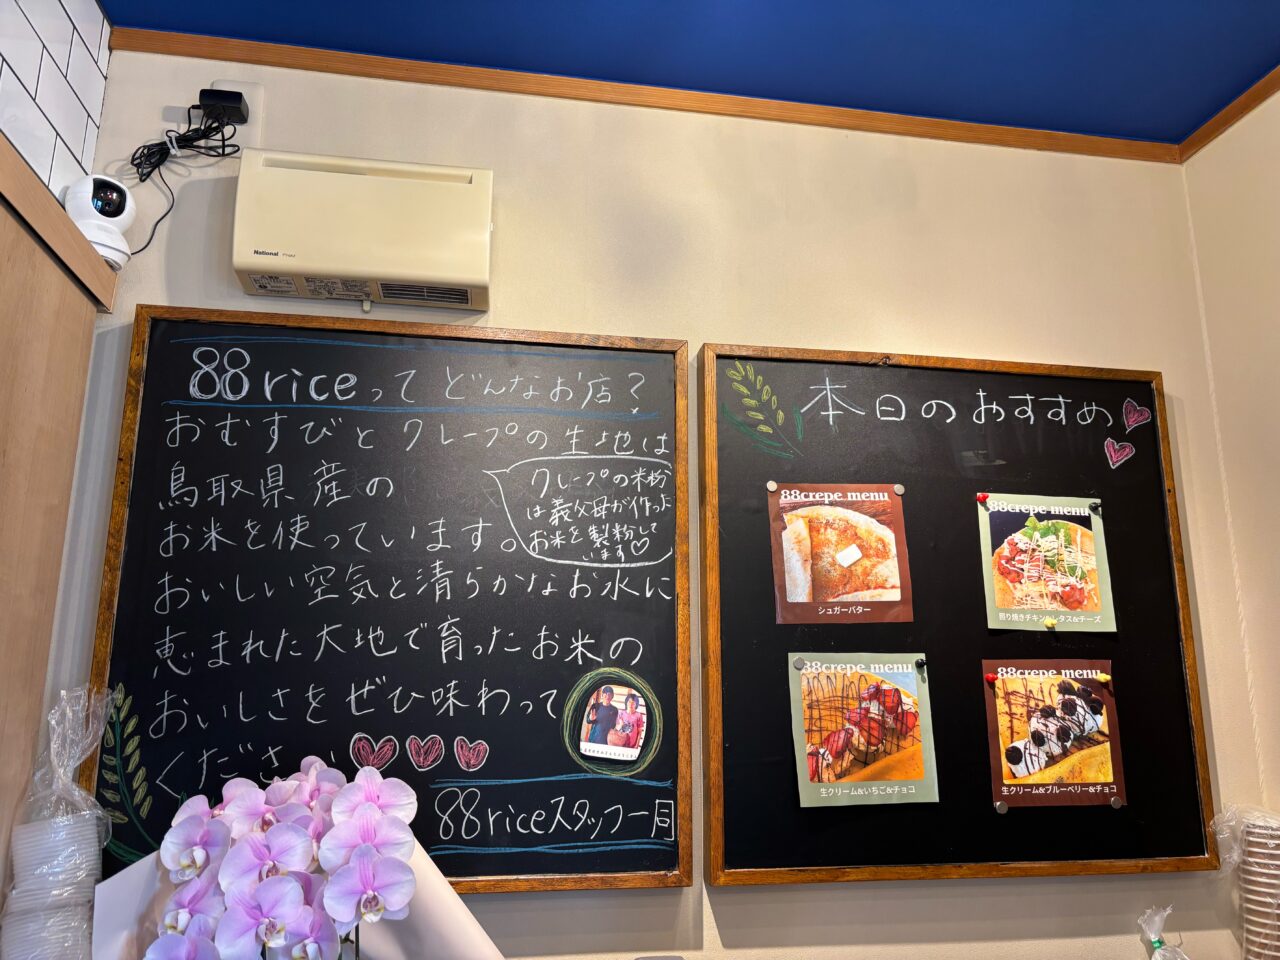 National
88riceってどんなお店?
おむすびとクレープの生地は
鳥取県産の
お米を使っています。
クレープの米粉
は義父母が作った
お米を製粉して
います♡
おいしい空気と清らかなお水に
恵まれた大地で育ったお米の
おいしさをぜひ味わって
ください
88riceスタッフ一同
本日のおすすめ
88crepe menu
シュガーバター
88crepe menu
照り焼きチキン&レタス&チーズ
88crepe menu
生クリーム&いちご&チョコ
88crepe menu
生クリーム&ブルーベリー&チョコ